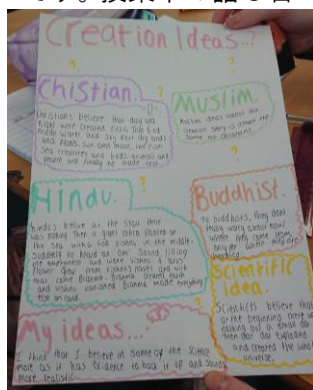 Creation Ideas..?
Chistian.
Christians believe that day and
night were created first. Then God
made water and sky next dry land
and plants. Sun and moon, then fish
sea creatures and birds animals and
people and finally he made rest.
Muslim.
Muslim ideas about the
creation story is almost the
same as christians.
Hindu.
hindus believe at the start there
was nothing then a giant cobra floated on
the sea with a God vishnu in the middle.
Suddenly he heard an 'om' sound filling
the emptiness and woke vishnu. A lotus
flower grew from vishnu's navel and with
that came Brahma. Brahma created
and vishnu vanished Brahma made everything
else on land.
Buddhist.
To buddhists, they don't
really worry about how/
where they came from
only for where they are
heading.
Scientific
idea.
Scientists believe that
at the beginning there was
nothing but a small
then that exploded
and created the whole
universe.
My ideas...
I think that I believe in some of the science
more as it has evidence to back it up and sounds
more realistic.